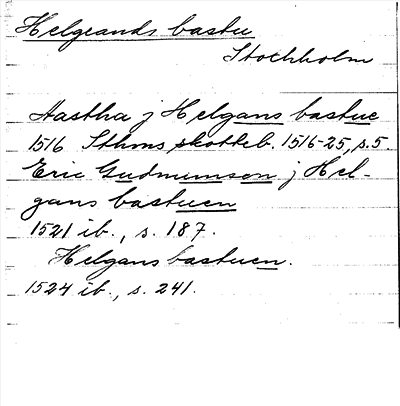 Helgeands bastu
Stockholm
Aastha j Helgans bastue
1516 Sthms skotteb. 1516-25, s. 5.
Eric Gudmunson j Hel-
gans bastuen
1521 ib., s. 187.
Helgans bastuen.
1524 ib., s. 241.